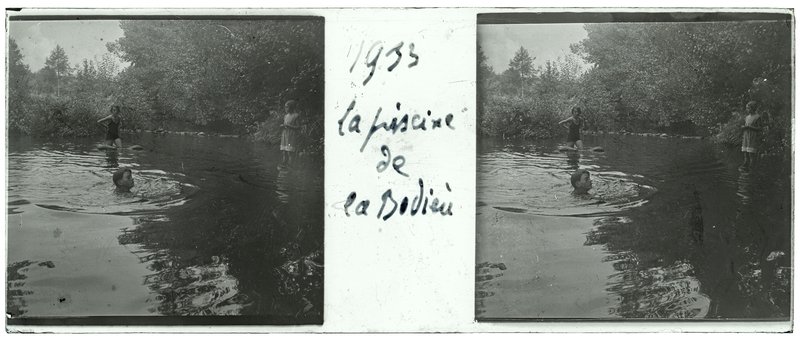 1933
la piscine
de
la Bodieu